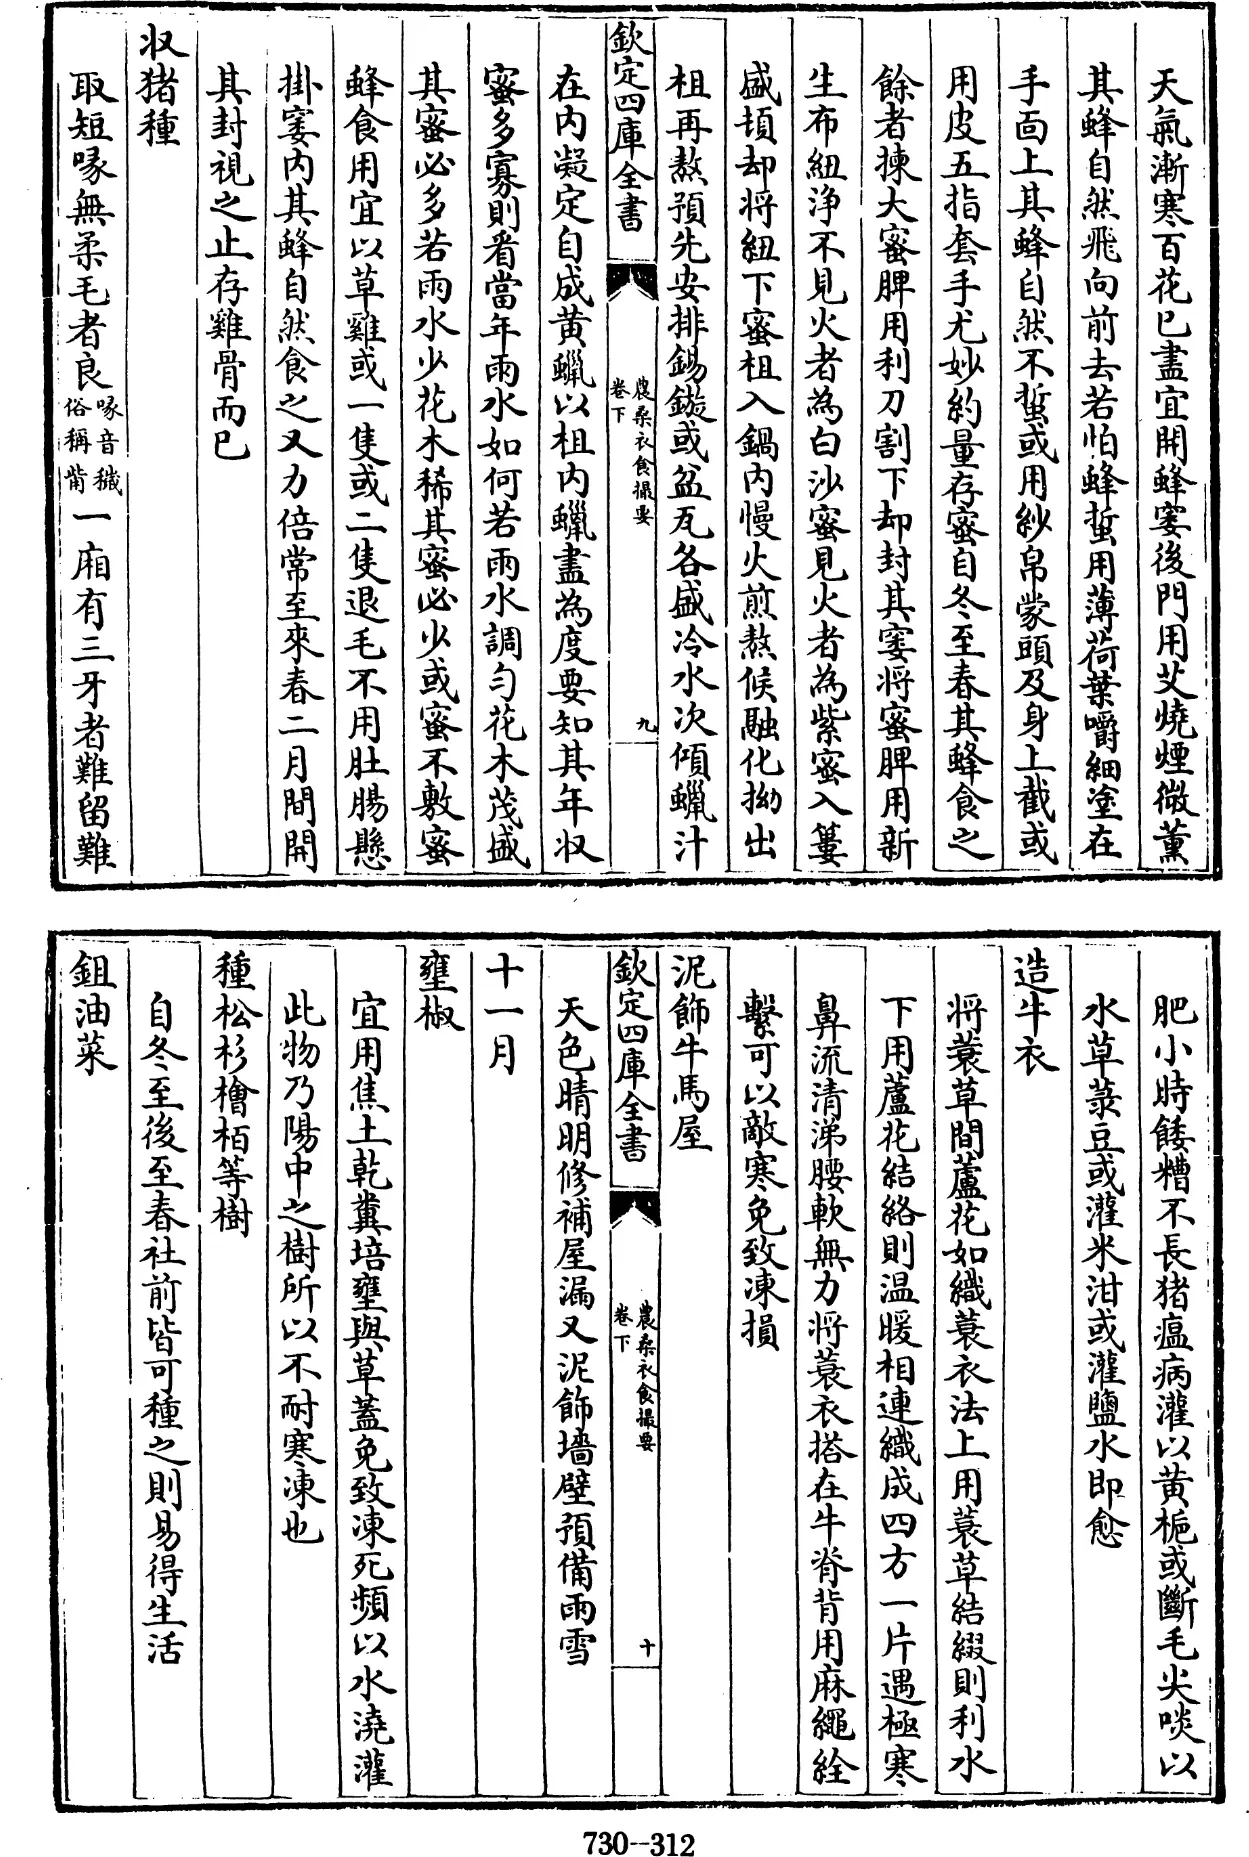 天氣漸寒百花已盡宜開蜂窭後門用艾燒煙微薰
其蜂自然飛向前去若怕蜂蜇用薄荷葉嚼細塗在
手面上其蜂自然不蜇或用紗帛蒙頭及身上截或
用皮五指套手尤妙約量存蜜自冬至春其蜂食之
餘者揀大蜜脾用利刀割下却封其窭將蜜脾用新
生布紐淨不見火者為白沙蜜見火者為紫蜜入簍
盛頓却將紐下蜜柤入鍋內慢火煎熬候融化拗出
柤再熬預先安排錫鏇或盆瓦各盛冷水次傾蠟汁
欽定四庫全書
農桑衣食撮要
卷下
九
在內凝定自成黄蠟以柤內蠟盡為度要知其年収
蜜多寡則看當年雨水如何若雨水調勻花木茂盛
其蜜必多若雨水少花木稀其蜜必少或蜜不敷蜜
蜂食用宜以草雞或一隻或二隻退毛不用肚腸懸
掛窭內其蜂自然食之又力倍常至來春二月間開
其封視之止存雞骨而已
収猪種
取短喙無柔毛者良喙音穢俗稱觜一廂有三牙者難留難
肥小時餧糟不長猪瘟病灌以黄梔或斷毛尖啖以
水草菉豆或灌米泔或灌鹽水即愈
造牛衣
將蓑草間蘆花如織蓑衣法上用蓑草結綴則利水
下用蘆花結絡則温暖相連織成四方一片遇極寒
鼻流清涕腰軟無力將蓑衣搭在牛脊背用麻繩絟
繫可以敵寒免致凍損
泥飾牛馬屋
欽定四庫全書
農桑衣食撮要
卷下
十
天色晴明修補屋漏又泥飾墻壁預備雨雪
十一月
壅椒
宜用焦土乾糞培壅與草蓋免致凍死頻以水澆灌
此物乃陽中之樹所以不耐寒凍也
種松杉檜栢等樹
自冬至後至春社前皆可種之則易得生活
鉏油菜
730--312